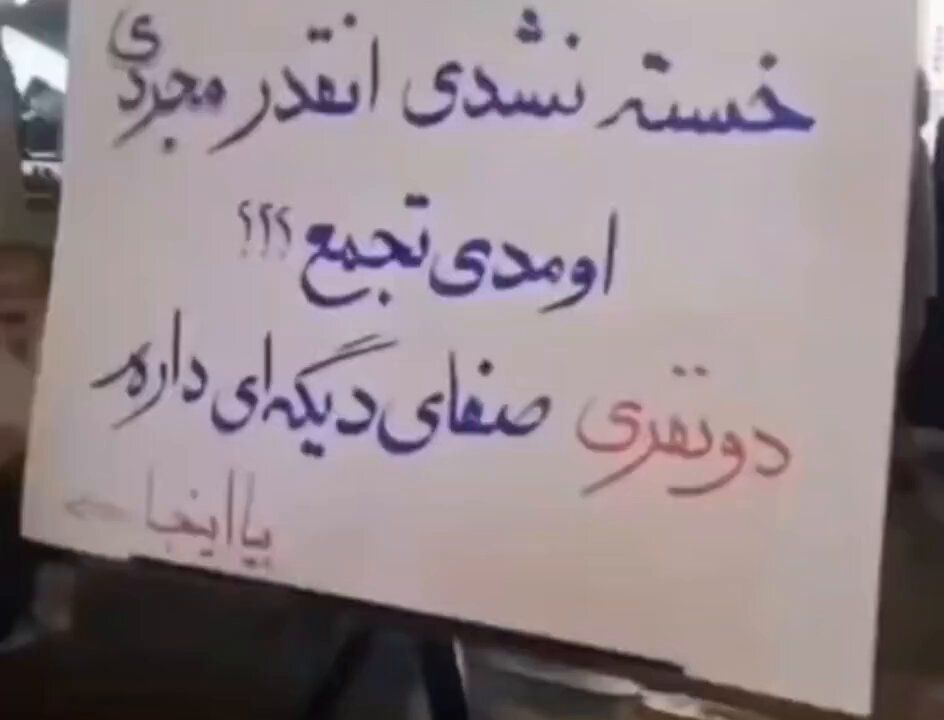 خسته نشدی انقدر مجردی
اومدی تجمع ؟؟؟
دونفری صفای دیگه‌ای داره
بیا اینجا ←